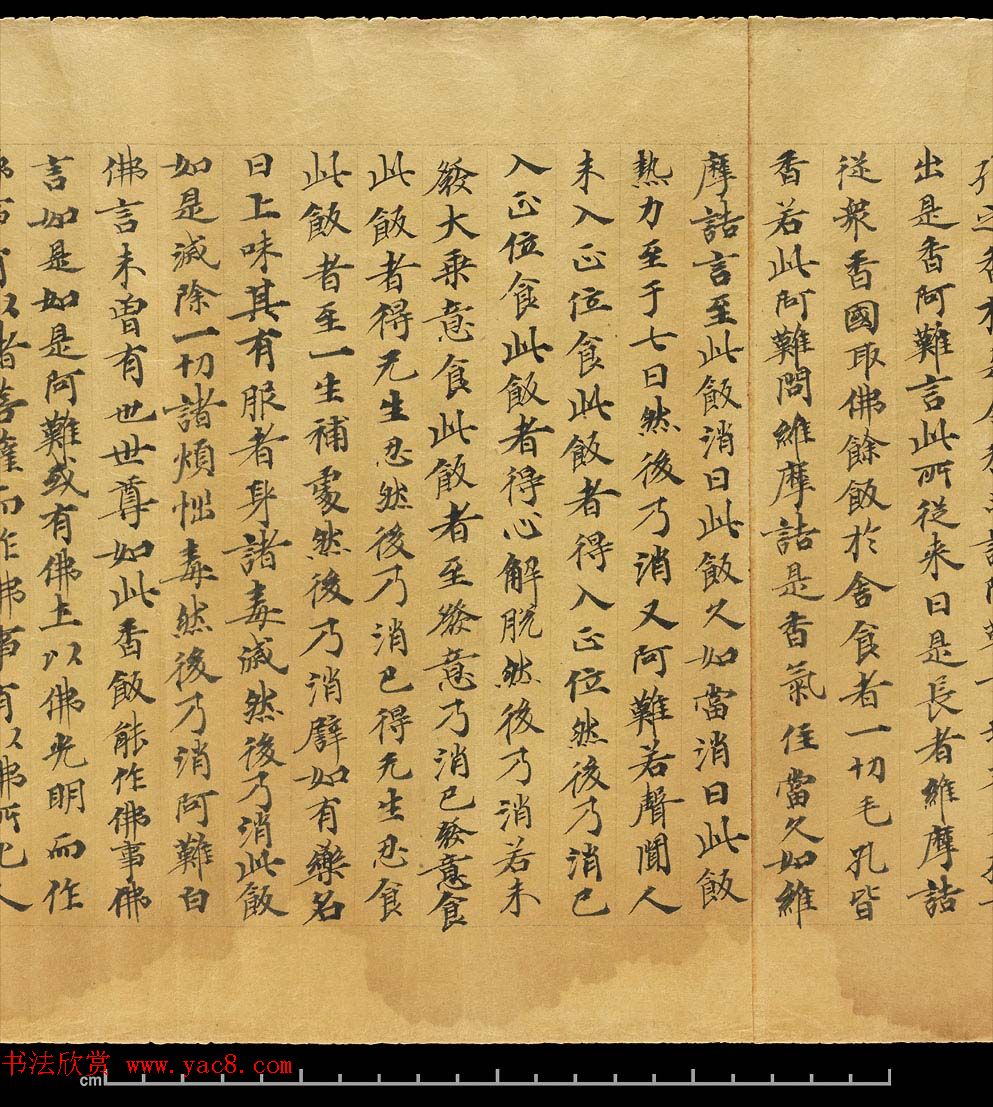 出是香阿難言此所従来曰是長者維摩詰
従衆香國取佛餘飯於舍食者一切毛孔皆
香若此阿難問維摩詰是香氣住當久如維
摩詰言至此飯消曰此飯久如當消曰此飯
熱力至于七日然後乃消又阿難若聲聞人
未入正位食此飯者得入正位然後乃消已
入正位食此飯者得心解脱然後乃消若未
發大乗意食此飯者至發意乃消已發意食
此飯者得无生忍然後乃消已得无生忍食
此飯者至一生補處然後乃消譬如有藥名
曰上味其有服者身諸毒滅然後乃消此飯
如是滅除一切諸煩惱毒然後乃消阿難白
佛言未曽有也世尊如此香飯能作佛事佛
言如是如是阿難或有佛土以佛光明而作
菩薩而作佛事有以佛所化人
书法欣赏 www.yac8.com
cm